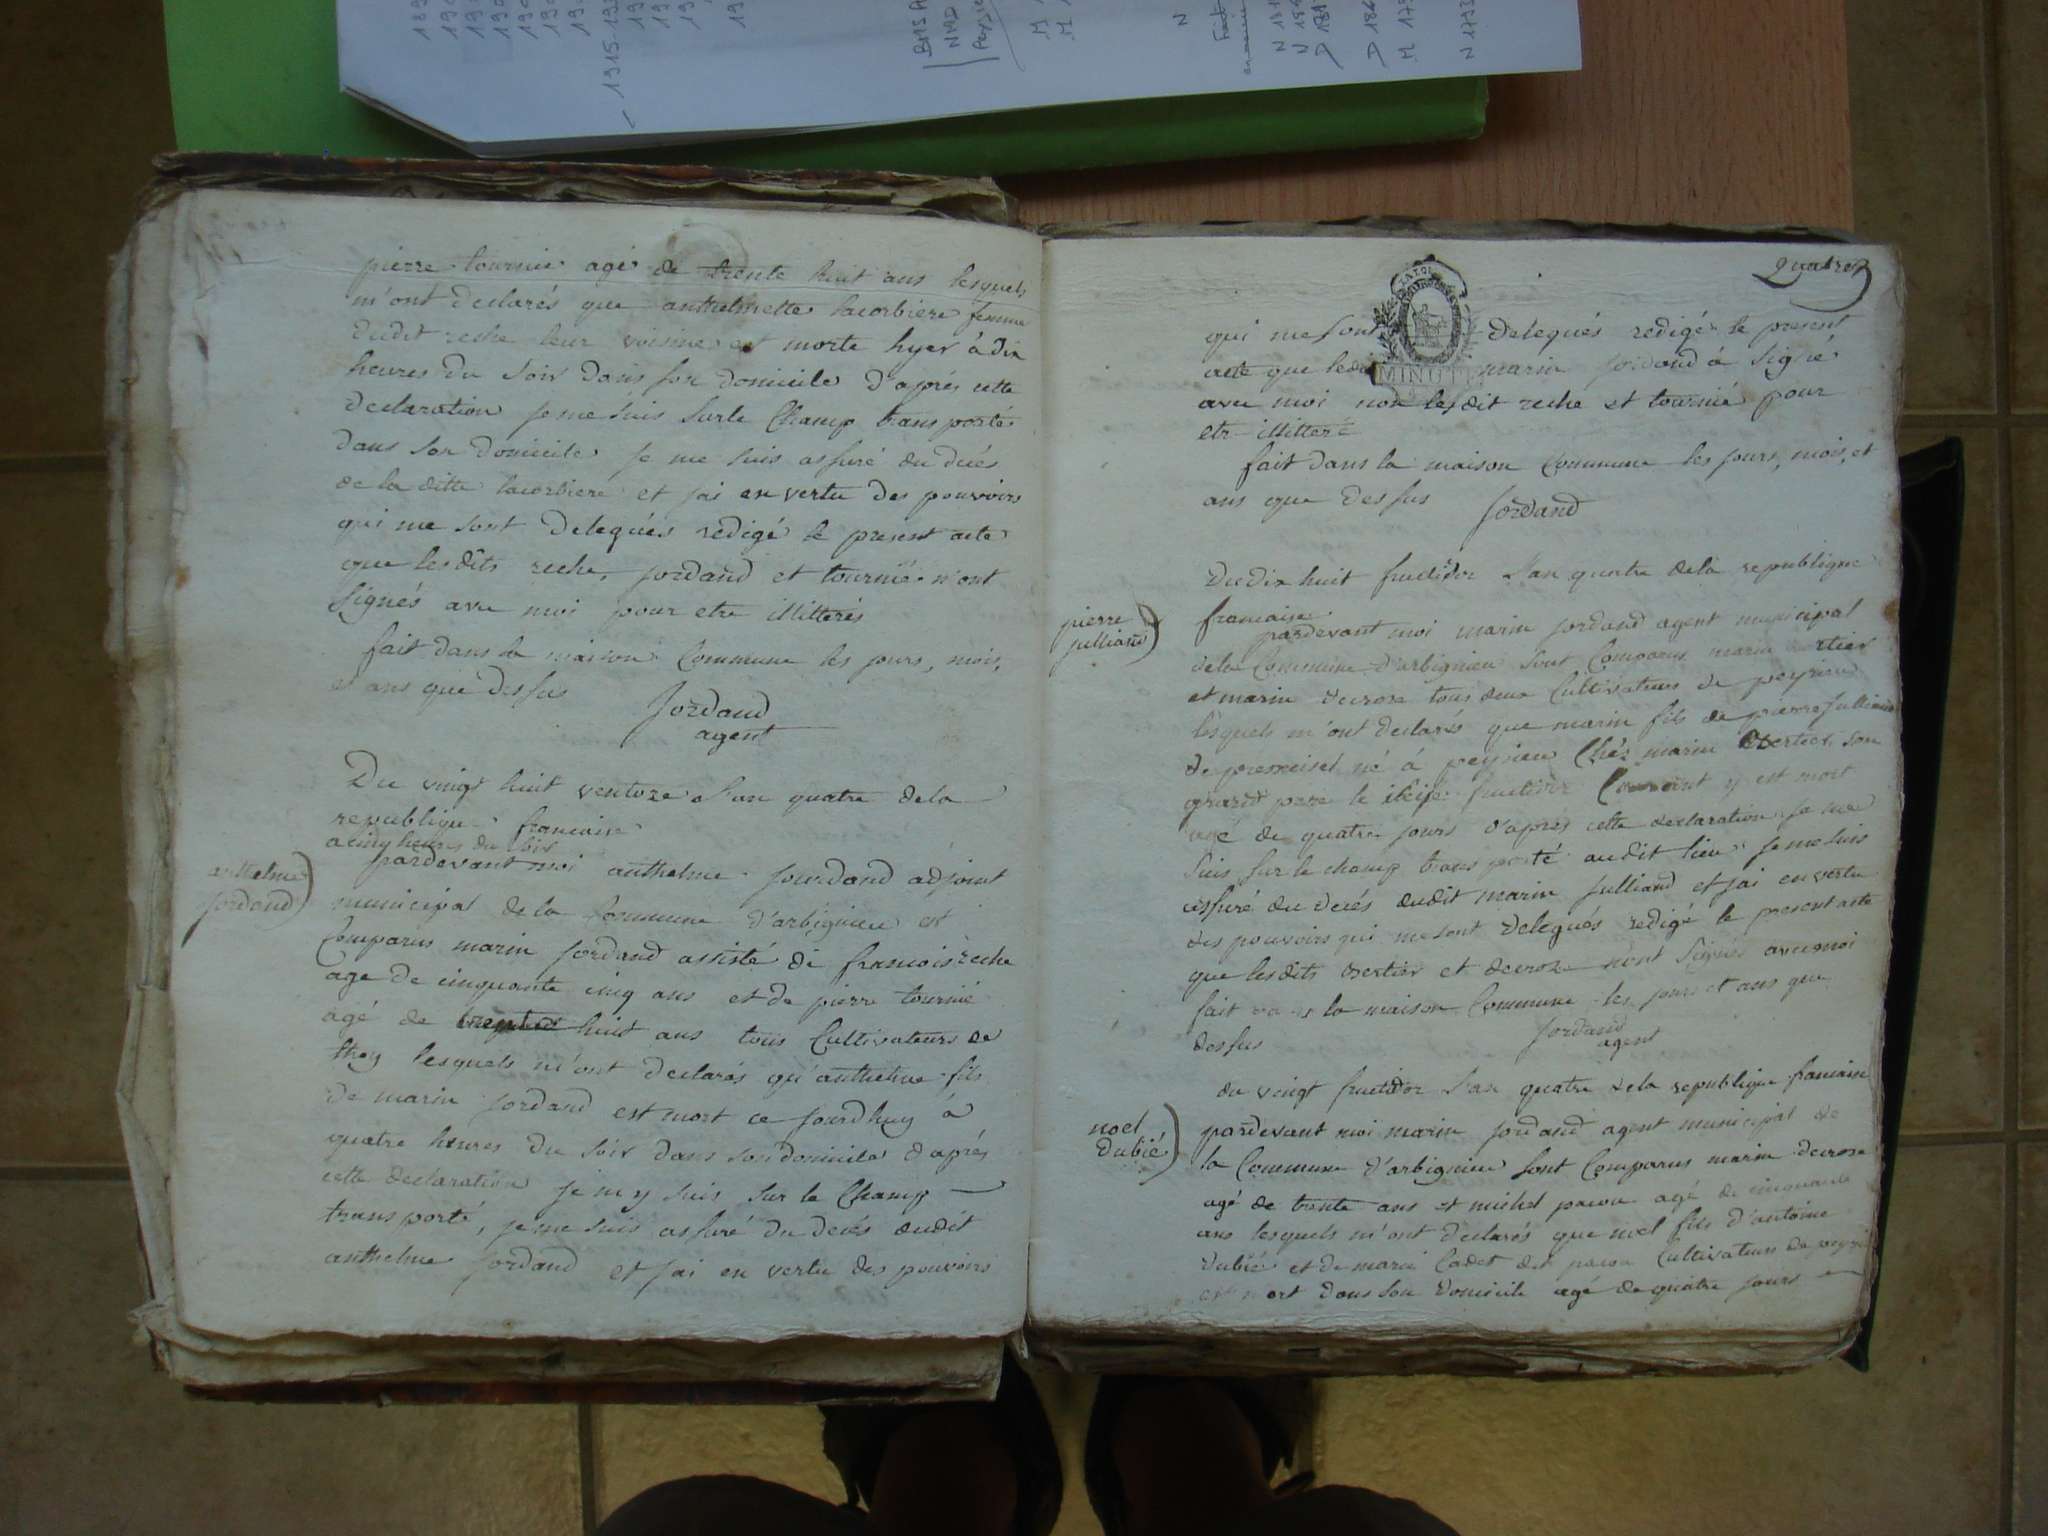 pierre tournié agé de trente huit ans lesquels
m'ont declarés que anthelmette lacorbiere femme
dudit reche leur voisine est morte hyer à dix
heures du Soir dans son domicile d'aprés cette
declaration je me suis sur le Champ transporté
dans son domicile je me suis assuré du decés
de la ditte lacorbiere et jai en vertu des pouvoirs
qui me sont delegués redigé le present acte
que lesdits reche, jordand et tournié n'ont
signés avec moi pour etre illitterés
fait dans la maison Commune les jours, mois,
et ans que dessus
Jordand
agent
Du vingt huit ventoze l'an quatre de la
republique francaise
a cinq heures du soir
anthelme
jordand
pardevant moi anthelme jourdand adjoint
municipal de la Commune d'arbignieu est
Comparus marin jordand assisté de francois reche
age de cinquante cinq ans et de pierre tournié
agé de huit ans tous Cultivateurs de
thoy lesquels m'ont declarés qu'anthelme fils
de marin jordand est mort ce jourdhuy à
quatre heures du soir dans son domicile d'aprés
cette declaration je m y suis sur le Champ
transporté, je me suis assuré du decés dudit
anthelme jordand et jai en vertu des pouvoirs
quatre
qui me sont delegués redigé le present
acte que ledit marin jordand à signé
avec moi non lesdit reche et tournié pour
etr illitteré
fait dans la maison Commune les jours, mois, et
ans que dessus
Jordand
MINUTE
Du dix huit fructidor l'an quatre de la republique
francaise
pierre
julliand
pardevant moi marin jordand agent municipal
de la Commune d'arbignieu sont Comparus marin
et marin decroze tous deux Cultivateurs de peyrieu
lesquels m'ont declarés que marin fils de pierre julliand
de premeisel né à peyrieu Chés marin Bertier son
grand pere le fructidor Courant y est mort
agé de quatre jours d'aprés cette declaration je me
suis sur le champ transporté audit lieu je me suis
assuré du decés dudit marin julliand et jai en vertu
des pouvoirs qui me sont delegués redigé le present acte
que lesdits Bertier et decroze n'ont signés avec moi
fait dans la maison Commune les jours et ans que
dessus
Jordand
agent
du vingt fructidor l'an quatre de la republique francaise
noel
dubié
pardevant moi marin jordand agent municipal de
la Commune d'arbignieu sont Comparus marin decroze
agé de trente ans et michel pacou agé de cinquante
ans lesquels m'ont declarés que noel fils d'antoine
dubié et de marie Cadet dit pacou Cultivateurs de
est mort dans son domicile agé de quatre jours